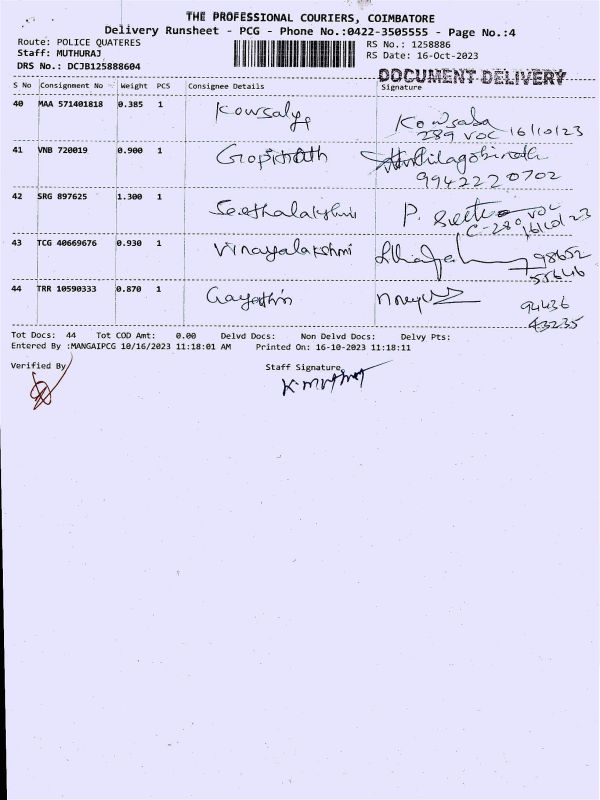 THE PROFESSIONAL COURIERS, COIMBATORE
Delivery Runsheet - PCG - Phone No.:0422-3505555 - Page No.:4
Route: POLICE QUATERES
RS No.: 1258886
Staff: MUTHURAJ
RS Date: 16-Oct-2023
DRS No.: DCJB125888604
DOCUMENT DELIVERY
S No Consignment No Weight PCS Consignee Details Signature
40 MAA 571401818 0.385 1 Kowsalya
289 VOC 16/10/23
41 VNB 720019 0.900 1 Gopinath
9942220702
42 SRG 897625 1.300 1 Seethalakshmi P.
C-280 VOC
16/10/23
43 TCG 40669676 0.930 1 Vinayalakshmi 98652
55646
44 TRR 10590333 0.870 1 Gayathiri
94436
43235
Tot Docs: 44 Tot COD Amt: 0.00 Delvd Docs: Non Delvd Docs: Delvy Pts:
Entered By :MANGAIPCG 10/16/2023 11:18:01 AM Printed On: 16-10-2023 11:18:11
Verified By Staff Signature